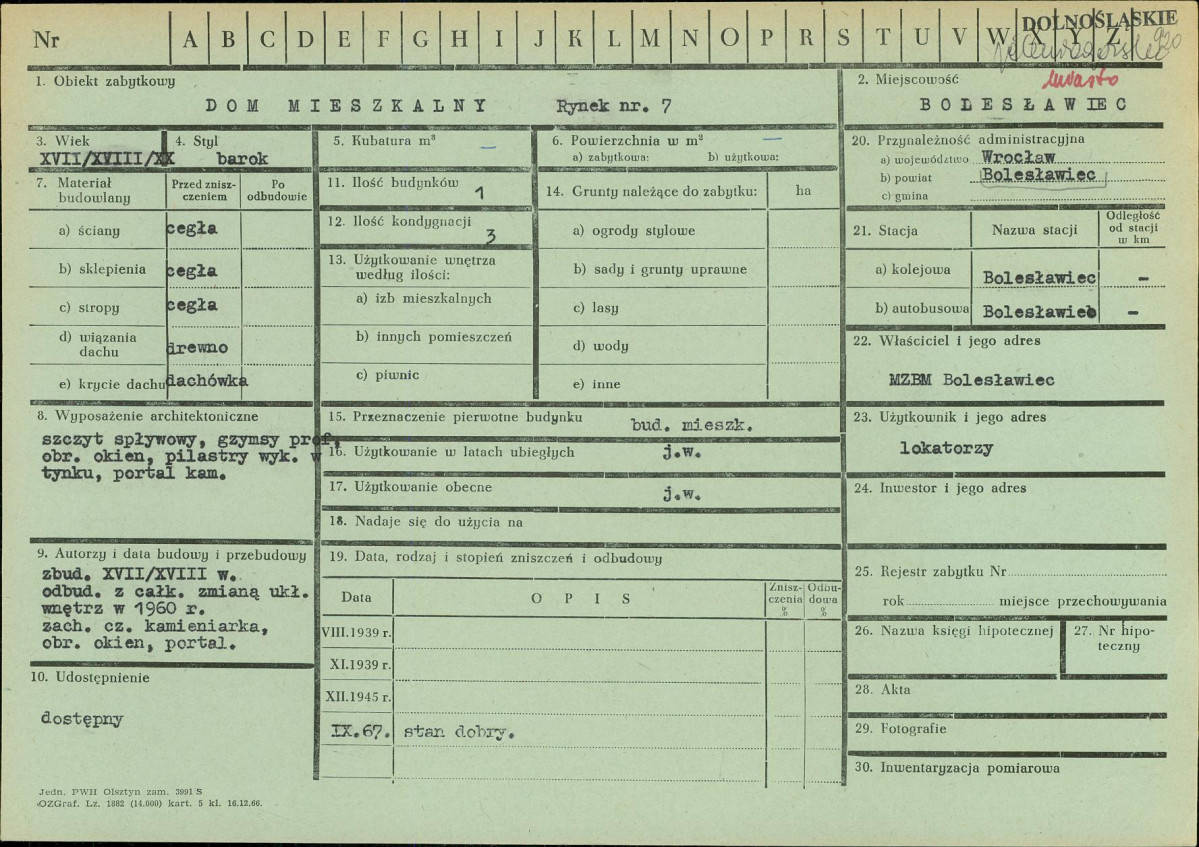 Nr A B C D E F G H I J K L M N O P R S T U V W X Y Z DOLNOŚLĄSKIE
920
miasto
1. Obiekt zabytkowy
DOM MIESZKALNY Rynek nr. 7
2. Miejscowość
BOLESŁAWIEC
3. Wiek
XVII/XVIII/XX
4. Styl
barok
5. Kubatura m³ —
6. Powierzchnia w m² —
a) zabytkowa: b) użytkowa:
7. Materiał budowlany
Przed zniszczeniem
Po odbudowie
a) ściany cegła
b) sklepienia cegła
c) stropy cegła
d) wiązania dachu drewno
e) krycie dachu dachówka
11. Ilość budynków 1
12. Ilość kondygnacji 3
13. Użytkowanie wnętrza
według ilości:
a) izb mieszkalnych
b) innych pomieszczeń
c) piwnic
14. Grunty należące do zabytku: ha
a) ogrody stylowe
b) sady i grunty uprawne
c) lasy
d) wody
e) inne
20. Przynależność administracyjna
a) województwo Wrocław
b) powiat Bolesławiec
c) gmina
21. Stacja Nazwa stacji Odległość od stacji w km
a) kolejowa Bolesławiec -
b) autobusowa Bolesławiec -
22. Właściciel i jego adres
MZBM Bolesławiec
8. Wyposażenie architektoniczne
szczyt spływowy, gzymsy prof,
obr. okien, pilastry wyk. w
tynku, portal kam.
15. Przeznaczenie pierwotne budynku bud. mieszk.
16. Użytkowanie w latach ubiegłych j.w.
17. Użytkowanie obecne j.w.
18. Nadaje się do użycia na
23. Użytkownik i jego adres
lokatorzy
24. Inwestor i jego adres
9. Autorzy i data budowy i przebudowy
zbud. XVII/XVIII w.
odbud. z całk. zmianą ukł.
wnętrz w 1960 r.
zach. cz. kamieniarka,
obr. okien, portal.
10. Udostępnienie
dostępny
19. Data, rodzaj i stopień zniszczeń i odbudowy
Data OPIS Zniszczenia % Odbudowa %
VIII.1939 r.
XI.1939 r.
XII.1945 r.
IX.67. stan dobry.
25. Rejestr zabytku Nr
rok miejsce przechowywania
26. Nazwa księgi hipotecznej
27. Nr hipoteczny
28. Akta
29. Fotografie
30. Inwentaryzacja pomiarowa
Jedn. PWH Olsztyn zam. 3991 S
OZGraf. Lz. 1882 (14.000) kart. 5 kl. 16.12.66.